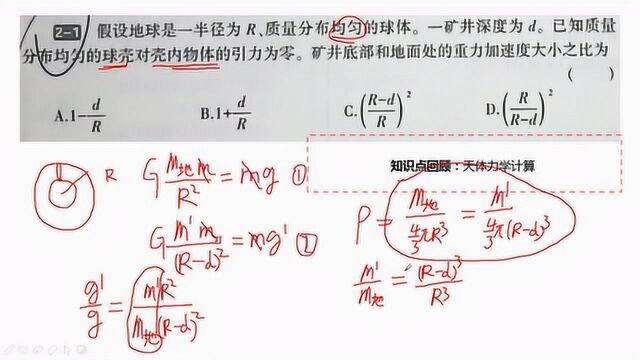 2-1 假设地球是一半径为 R、质量分布均匀的球体。一矿井深度为 d。已知质量
分布均匀的球壳对壳内物体的引力为零。矿井底部和地面处的重力加速度大小之比为
( )
A.1-d/R B.1+d/R C.((R-d)/R)² D.(R/(R-d))²
知识点回顾：天体力学计算
R
G m地m/R² = mg ①
G m'm/(R-d)² = mg' ②
g'/g = m'R²/m地(R-d)²
ρ = m地/(4/3 πR³) = m'/(4/3 π(R-d)³)
m'/m地 = (R-d)³/R³